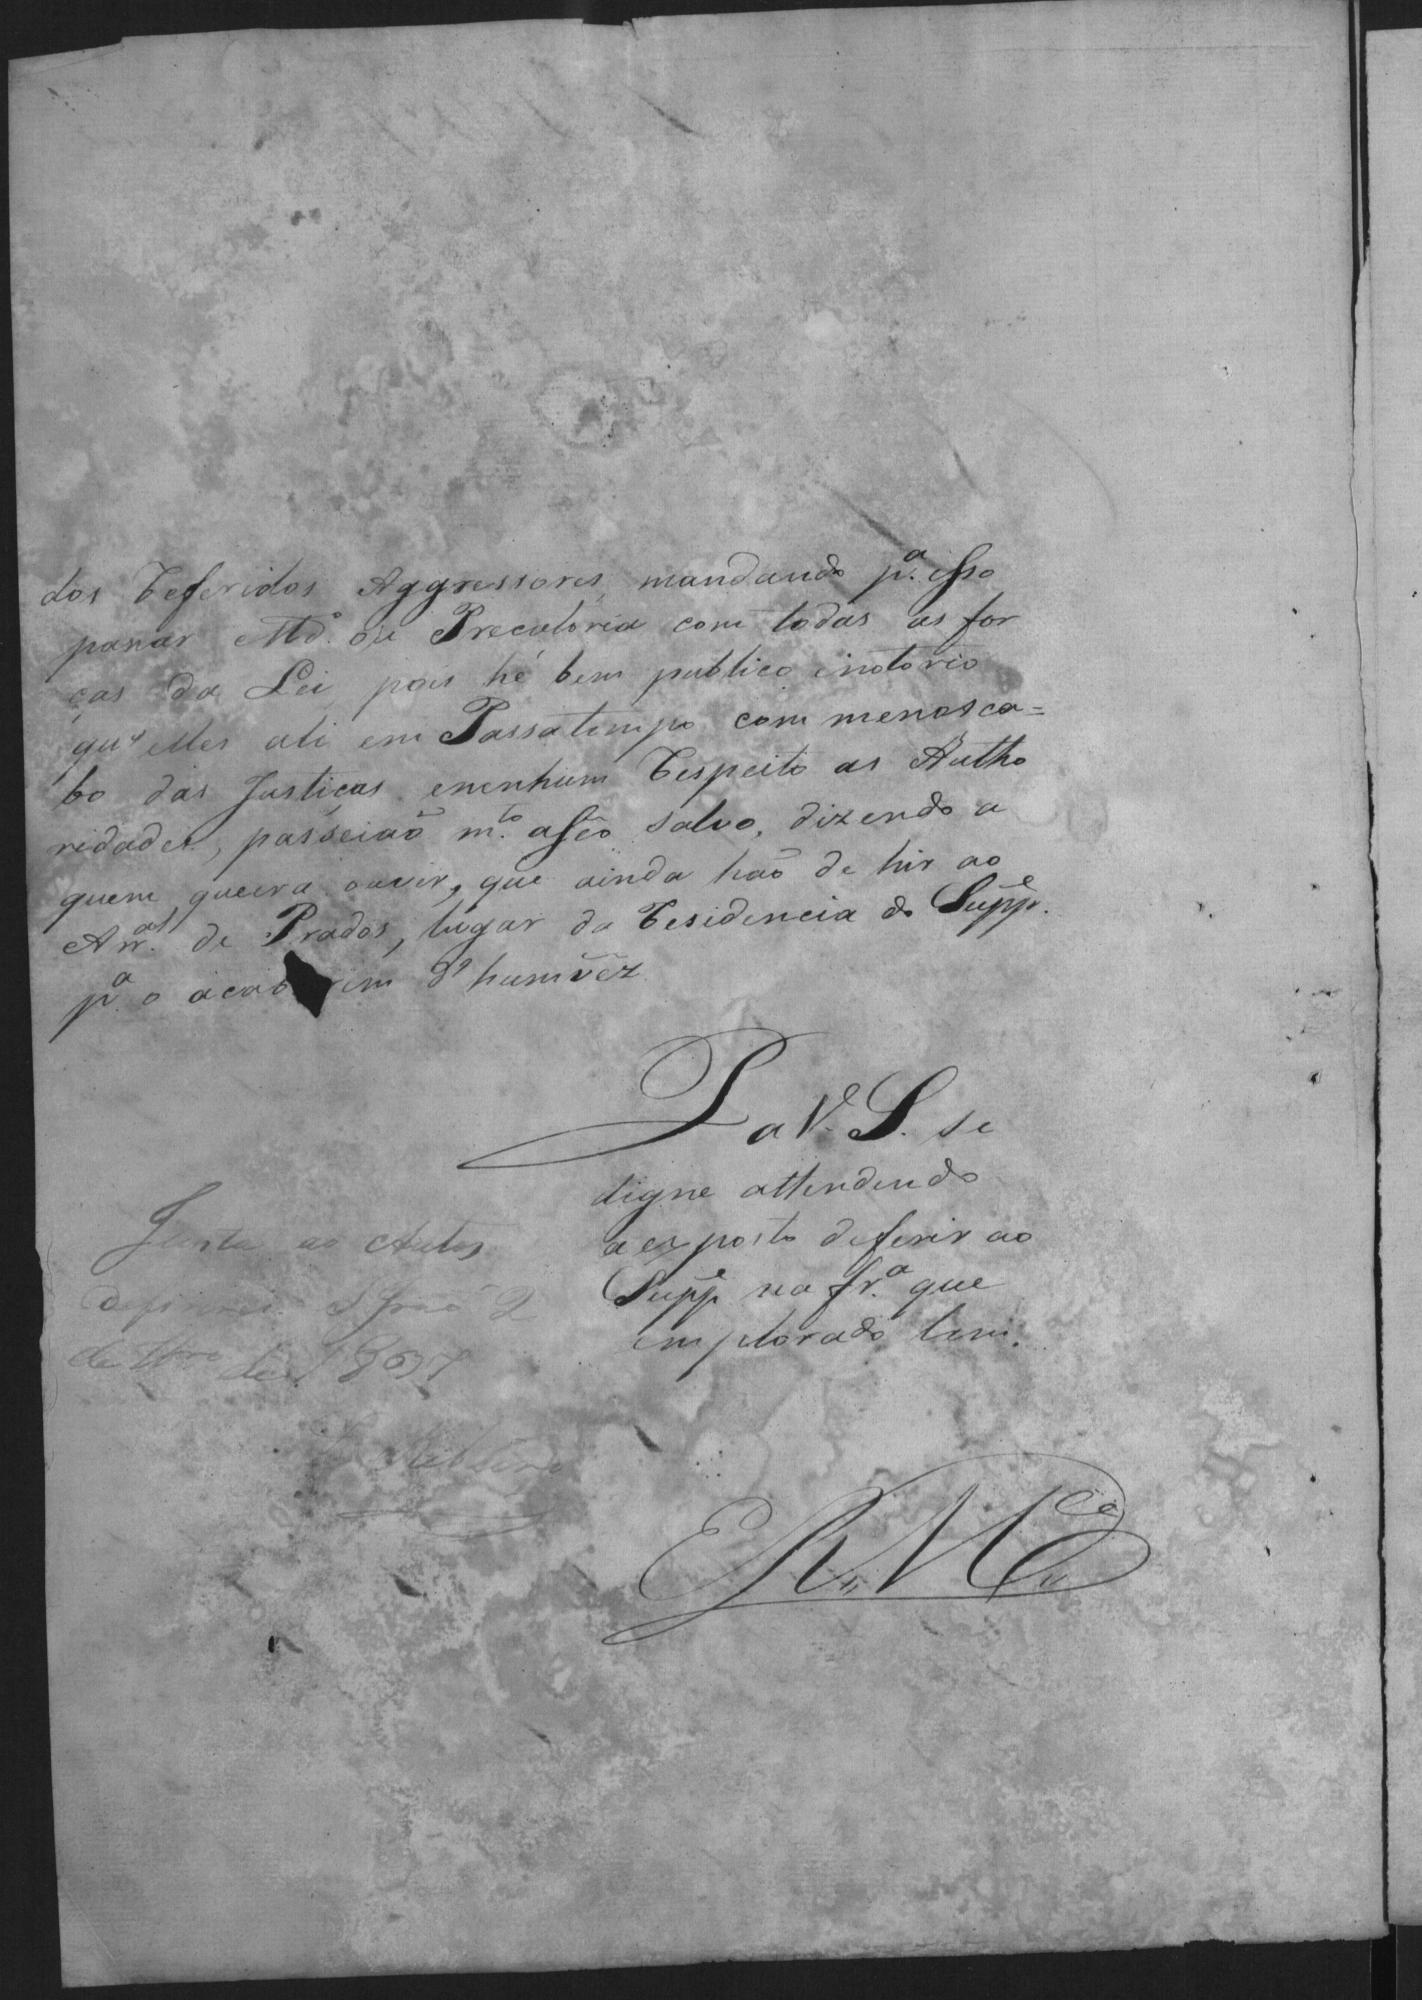 dos Referidos Aggressores, mandando p.ª isso
passar Md.º ou Precatoria com todas as for
ças da Lei, pois hé bem publico enotorio
qu'elles ali em Passatempo com menosca=
bo das Justiças enenhum Respeito as Autho
ridades, passeiaõ m.to aseo salvo, dizendo a
quem queira ouvir, que ainda haõ de hir ao
Arr.al de Prados, lugar da Residencia do Supp.e
p.ª o acab rem d'humvêz
P a V. S. se
digne attendendo
aexposto deferir ao
Supp.e na fr.ª que
emplorado tem.
E R. M.ce
Junta ao Autos
S Joaõ 2
de de 1837